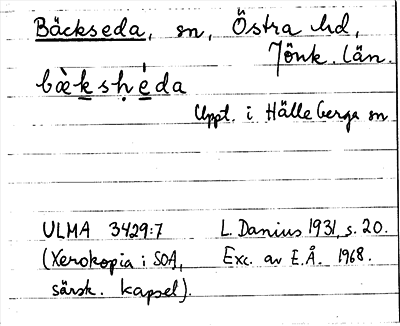 Bäckseda, sn, Östra hd,
Jönk. län.
bæ̀kshẹ́da
Uppt. i Hälleberga sn
ULMA 3429:7 L. Danius 1931, s. 20.
(Xerokopia i SOA, Exc. av E.Å. 1968.
särsk. kapsel).